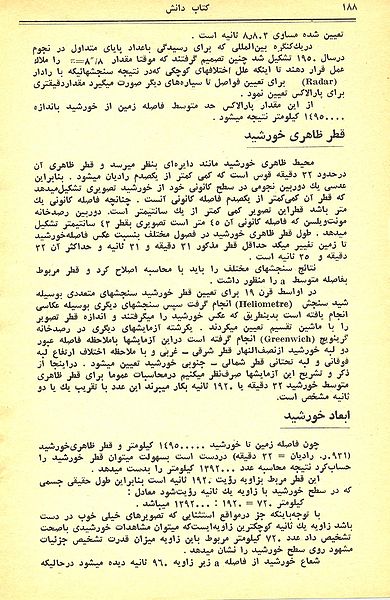 ۱۸۸ کتاب دانش
تعیین شده مساوی ۸٫۸۰۳ ثانیه است .
دریک‌کنگره بین‌المللی که برای رسیدگی باعداد پایای متداول در نجوم
درسال ۱۹۵۰ تشکیل شد چنین تصمیم گرفتند که موقتا مقدار ۸/″۸ = را ملاک
عمل قرار دهند تا اینکه علل اختلافهای کوچکی که در نتیجه سنجشهائیکه با رادار
(Radar) برای تعیین فواصل تا سیاره‌های دیگر صورت میگیرد مقداردقیقتری
برای پارالاکس تعیین نمود .
از این مقدار پارالاکس حد متوسط فاصله زمین از خورشید باندازه
۱۴۹۵۰۰۰۰۰ کیلومتر نتیجه میشود .
قطر ظاهری خورشید
محیط ظاهری خورشید مانند دایره‌ای بنظر میرسد و قطر ظاهری آن
درحدود ۳۲ دقیقه قوس است که کمی کمتر از یکصدم رادیان میشود . بنابراین
عدسی یک دوربین نجومی در سطح کانونی خود از خورشید تصویری تشکیل‌میدهد
که قطر آن کمی‌کمتر از یکصدم فاصله کانونی آنست . چنانچه فاصله کانونی یک
متر باشد قطراین تصویر کمی کمتر از یک سانتیمتر است. دوربین رصدخانه
مونت‌ویلسن که فاصله کانونی آن ۴۵ متر است تصویری بقطر ۴۲ سانتیمتر تشکیل
میدهد . طول قطر ظاهری خورشید در فصول مختلف بنسبت عکس فاصله‌خورشید
تا زمین تغییر میکند حداقل قطر مذکور ۳۱ دقیقه و ۳۱ ثانیه و حداکثر آن ۳۲
دقیقه و ۳۵ ثانیه است
نتائج سنجشهای مختلف را باید با محاسبه اصلاح کرد و قطر مربوط
بفاصله متوسط a را منظور داشت .
در اواسط قرن ۱۹ برای تعیین قطر خورشید سنجشهای متعددی بوسیله
شید سنجش (Heliometre) انجام گرفت سپس سنجشهای دیگری بوسیله عکاسی
انجام یافته است بدینطریق که عکس خورشید را میگرفتند و اندازه قطر تصویر
را با ماشین تقسیم تعیین میکردند . یکرشته آزمایشهای دیگری در رصدخانه
گرینویچ (Greenwich) انجام گرفته است دراین آزمایشها باملاحظه فاصله عبور
دو لبه خورشید ازنصف‌النهار قطر شرقی ـ غربی و با ملاحظه اختلاف ارتفاع لبه
فوقانی و لبه تحتانی قطر شمالی ـ جنوبی خورشید تعیین میشود . دراینجا از
ذکر و تشریح این آزمایشها صرف‌نظر میکنیم درمحاسبات عموما برای قطر ظاهری
متوسط خورشید ۳۲ دقیقه یا ۱۹۲۰ ثانیه بکار میبرند این عدد با تقریب یک یا دو
ثانیه مشخص است.
ابعاد خورشید
چون فاصله زمین تا خورشید ۱۴۹۵۰۰۰۰۰ کیلومتر و قطر ظاهری‌خورشید
(۹۳۱.ر. رادیان = ۳۲ دقیقه) دردست است بسهولت میتوان قطر خورشید را
حساب‌کرد نتیجه محاسبه عدد ۱۳۹۲۰۰۰ کیلومتر را بدست میدهد .
این قطر مربط بزاویه رؤیت ۱۹۲۰ ثانیه است بنابراین طول حقیقی جسمی
که در سطح خورشید با زاویه یک ثانیه رؤیت‌شود معادل :
کیلومتر ۷۲۰ = ۱۹۲۰ : ۱۳۹۲۰۰۰ میباشد .
با توجه‌باینکه جز درمواقع استثنایی که تصویرهای خیلی خوب در دست
باشد زاویه یک ثانیه کوچکترین زاویه‌ایست‌که میتوان مشاهدات خورشیدی باصحت
تشخیص داد عدد ۷۲۰ کیلومتر مربوط باین زاویه میزان قدرت تشخیص جزئیات
مشهود روی سطح خورشید را نشان میدهد .
شعاع خورشید از فاصله a زیر زاویه ۹۶۰ ثانیه دیده میشود درحالیکه